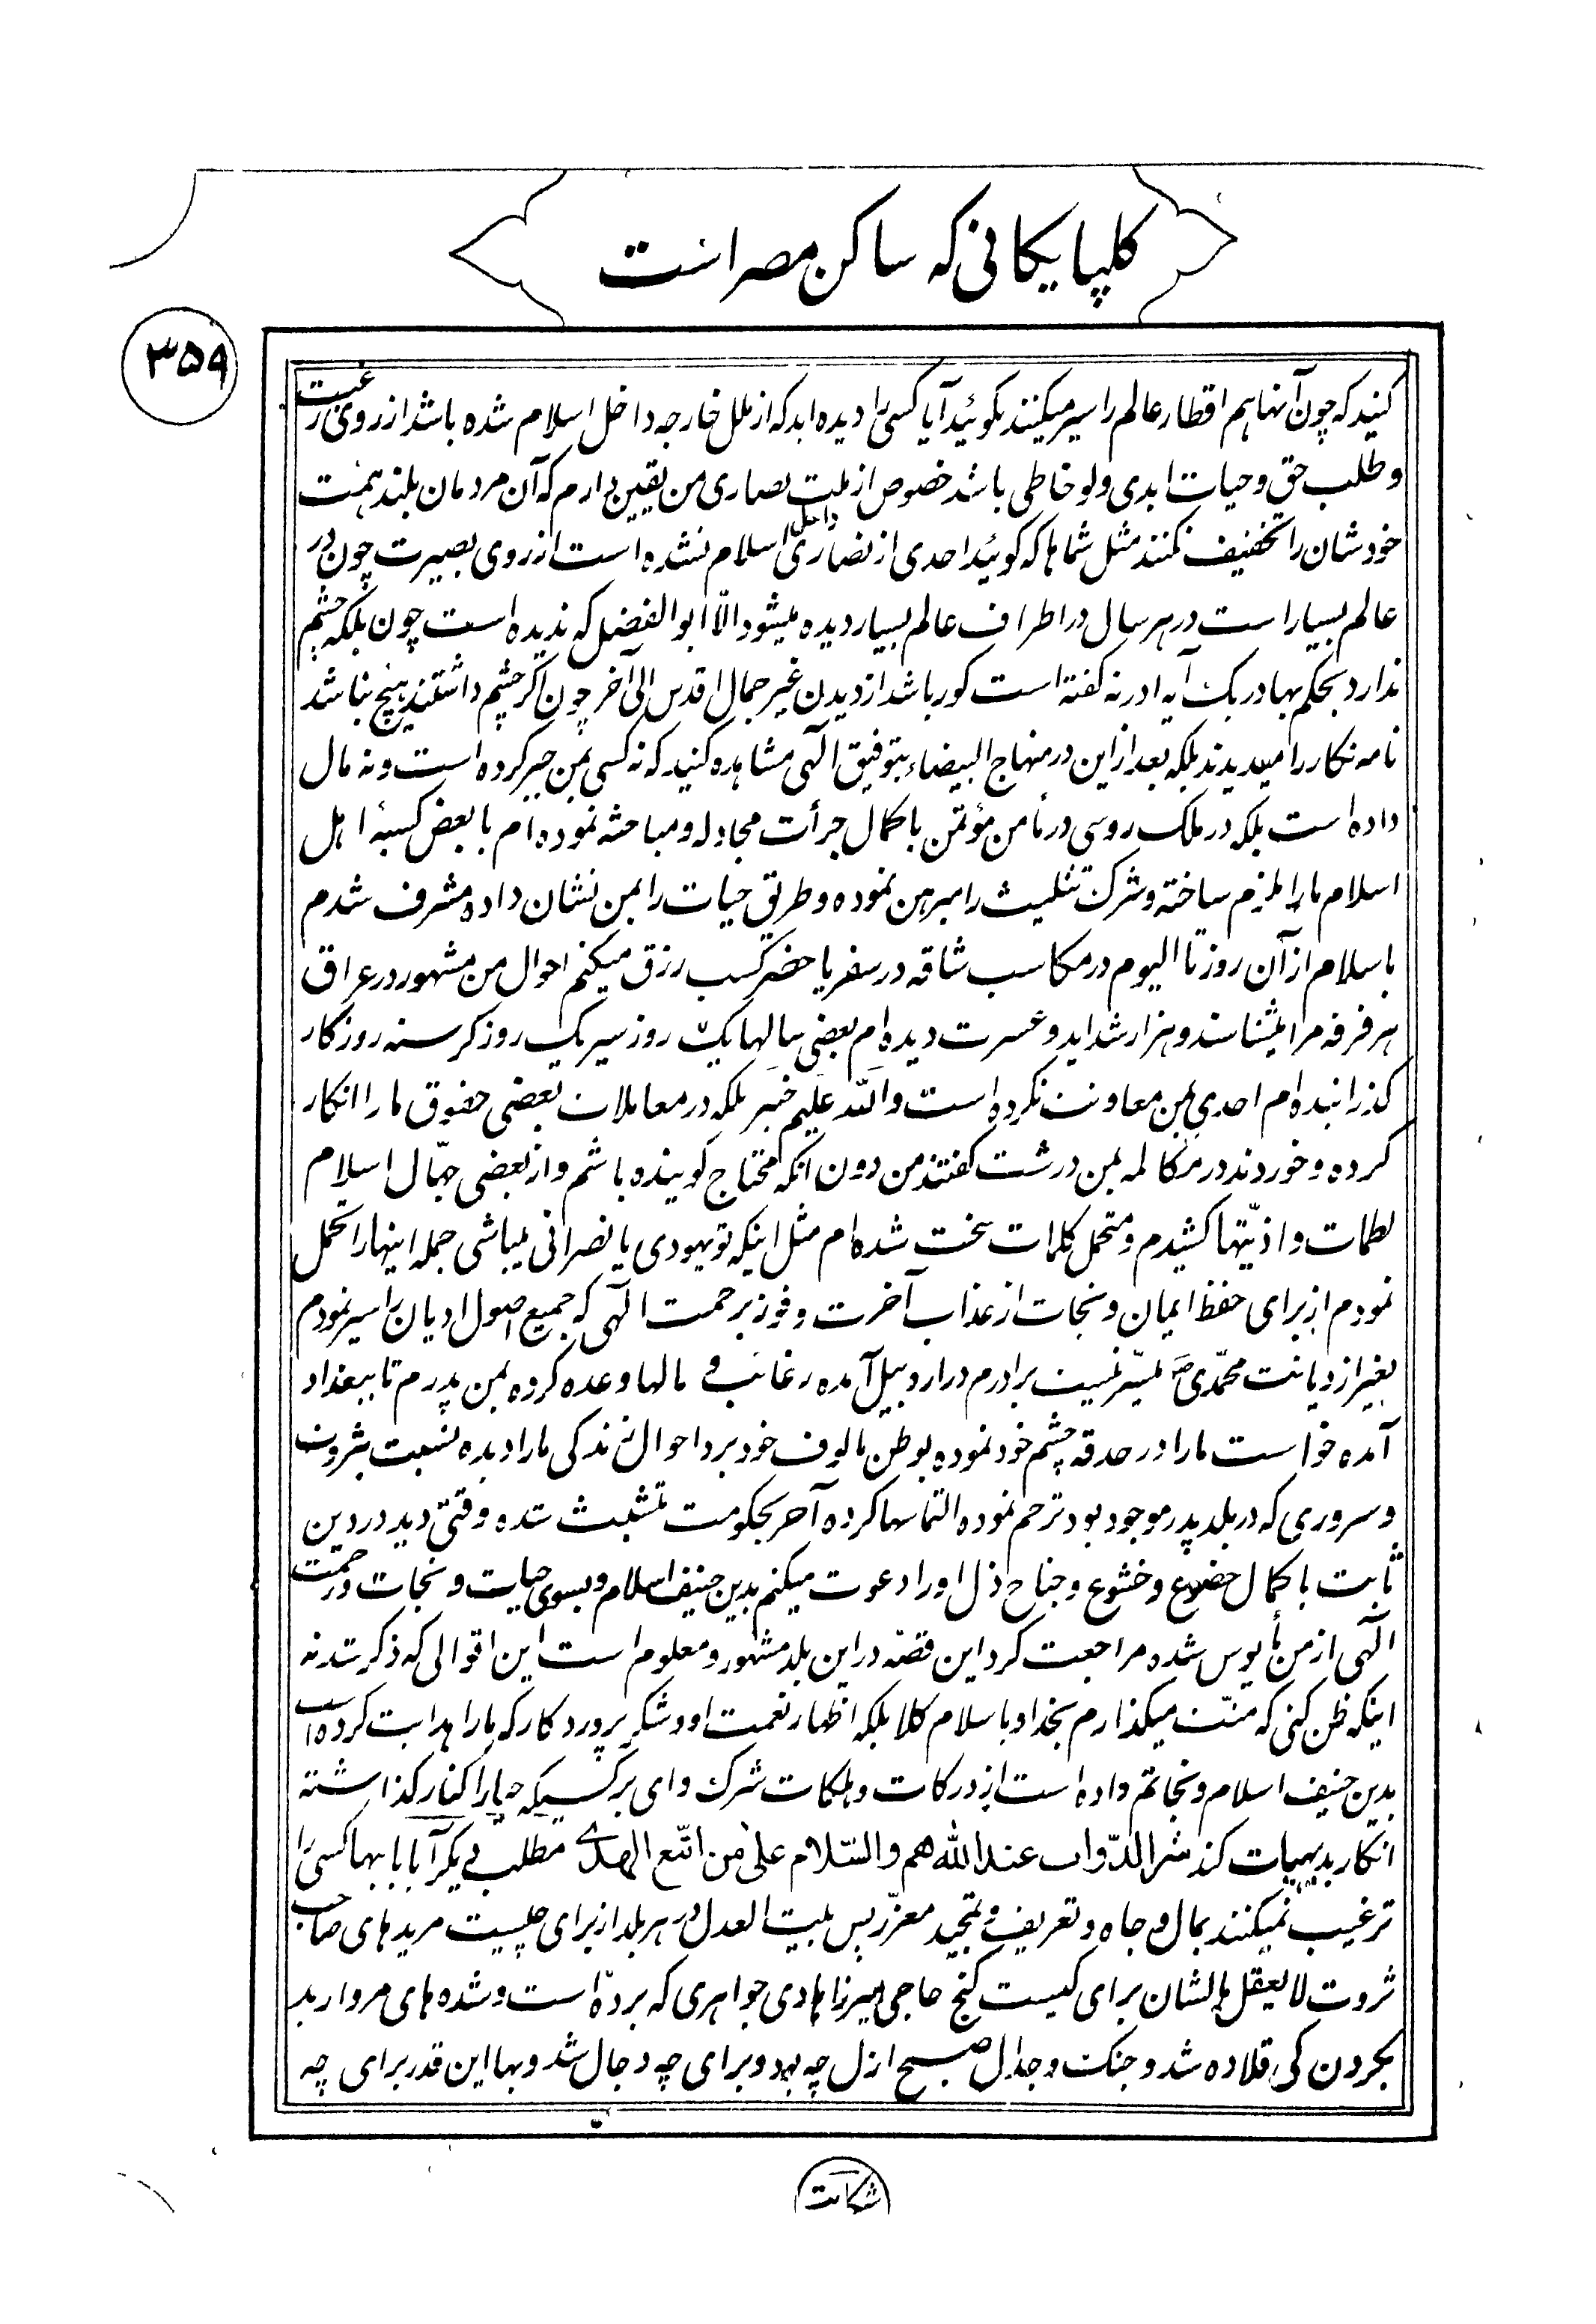 کلپایکانی که ساکن مصر است
۳۵۹
کنید که چون آنها هم اقطار عالم را سیر میکنند بکوئید آیا کسی را دیده اید که از ملل خارجه داخل اسلام شده باشد از روی رغبت
و طلب حق و حیات ابدی ولو خاطی باشد خصوص از ملت نصاری من یقین دارم که آن مردمان بلند همت
خودشان را تخفیف نکنند مثل شماها که کوئید احدی از نصاری داخل اسلام نشده است از روی بصیرت چون در
عالم بسیار است در هر سال در اطراف عالم بسیار دیده میشود الّا ابوالفضل که ندیده است چون بلکه چشم
ندارد بحکم بها در یک آیه ادرنه کفته است کور باشد از دیدن غیر جمال اقدس الی آخر چون اکر چشم داشتند هیچ نباشد
نامه نکار را میدیدند بلکه بعد از این در منهاج البیضاء بتوفیق الهی مشاهده کنید که نه کسی بمن جبر کرده است و نه مال
داده است بلکه در ملک روسی در مأمن مؤتمن باکمال جرأت مجادله و مباحثه نموده ام با بعض کسبهٔ اهل
اسلام مارا ملزم ساخته و شرک تثلیث را مبرهن نموده و طریق حیات را بمن نشان داده مشرف شدم
باسلام از آن روز تا الیوم در مکاسب شاقه در سفر یا حضر کسب رزق میکنم احوال من مشهور در عراق
هر فرقه مرا میشناسند و هزار شداید و عسرت دیده ام بعضی سالها یک روز سیر یک روز کرسنه روزکار
کذرانیده ام احدی بمن معاونت نکرده است والله علیم خبیر بلکه در معاملات بعضی حقوق مارا انکار
کرده و خوردند در مکالمه بمن درشت کفتند من دون انکه محتاج کوینده باشم و از بعضی جهّال اسلام
لطمات و اذیّتها کشیدم و متحمل کلمات سخت شده ام مثل اینکه تو یهودی یا نصرانی میباشی جمله اینها را تحمل
نمودم از برای حفظ ایمان و نجات از عذاب آخرت و فوز برحمت الهی که جمیع اصول ادیان را سیر نمودم
بغیر از دیانت محمّدی ص میسّر نیست برادرم در اردبیل آمده رغائب و مالها وعده کرده بمن پدرم تا ببغداد
آمده خواست مارا در حدقه چشم خود نموده بوطن مالوف خود برد احوال زندکی مارا دیده نسبت بثروت
و سروری که در بلد پدر موجود بود ترحم نموده التماسها کرده آخر بحکومت متشبث شده وقتی دید در دین
ثابت باکمال خضوع و خشوع و جناح ذل اورا دعوت میکنم بدین حنیف اسلام و بسوی حیات و نجات و رحمت
الهی از من مأیوس شده مراجعت کرد این قصّه در این بلد مشهور و معلوم است این اقوالی که ذکر شد نه
اینکه ظن کنی که منّت میکذارم بخدا و باسلام کلا بلکه اظهار نعمت او و شکر پروردکار که مارا هدایت کرده است
بدین حنیف اسلام و نجاتم داده است از درکات و هلکات شرک وای بر کسیکه حیا را کنار کذاشته
انکار بدیهیات کند شر الدّواب عند الله هم والسّلام علی من اتّبع الهدی مطلب دیکر آیا بابا بها کسی را
ترغیب نمیکنند بمال و جاه و تعریف و تمجید معزّز پس بیت العدل در هر بلد از برای چیست مریدهای صاحب
ثروت لایعقل مالشان برای کیست کنج حاجی میرزا هادی جواهری که برده است و شده های مروارید
بکردن کی قلاده شد و جنک و جدال صبح ازل چه بود و برای چه دجال شد و بها این قدر برای چه
شکایت